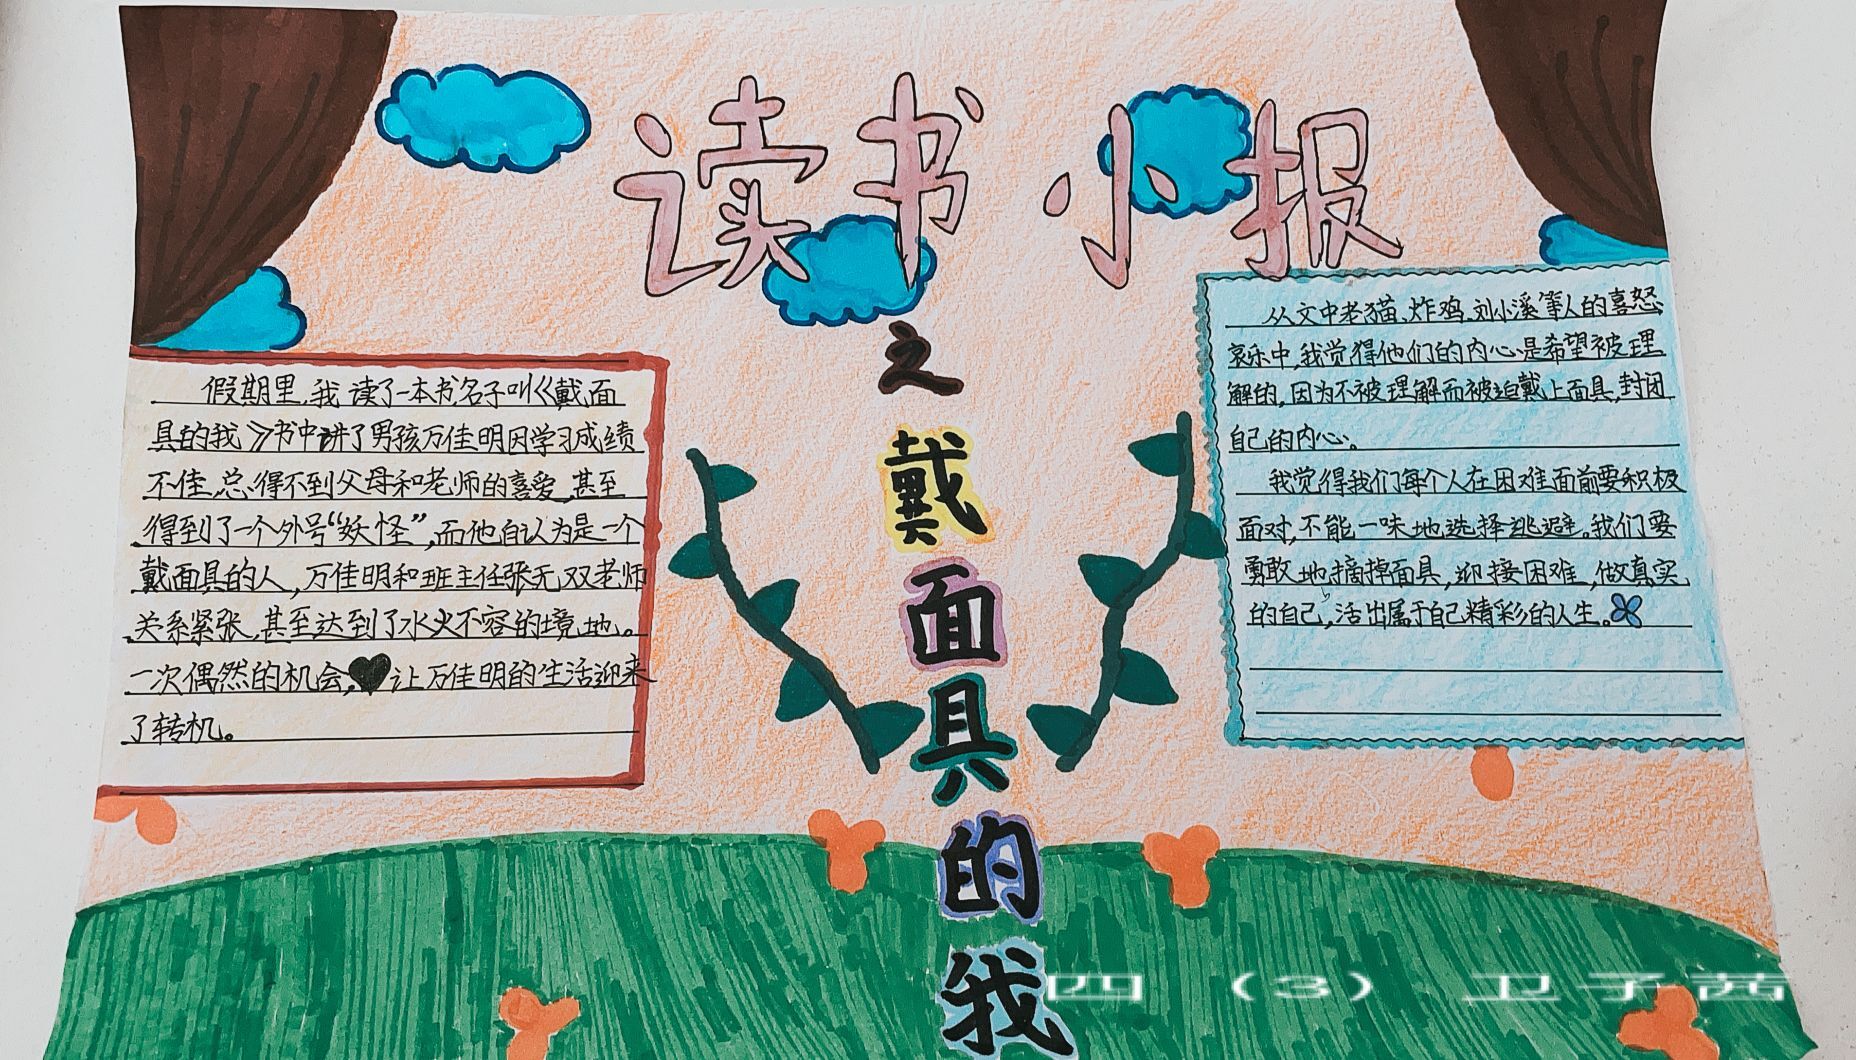 读书小报
之
戴面具的我
假期里,我读了一本书,名子叫《戴面
具的我》书中讲了男孩万佳明因学习成绩
不佳,总得不到父母和老师的喜爱,甚至
得到了一个外号“妖怪”,而他自认为是一个
戴面具的人,万佳明和班主任张无双老师
关系紧张,甚至达到了水火不容的境地。
一次偶然的机会,让万佳明的生活迎来
了转机。
从文中老猫、炸鸡、刘小溪等人的喜怒
哀乐中,我觉得他们的内心是希望被理
解的,因为不被理解而被迫戴上面具,封闭
自己的内心。
我觉得我们每个人在困难面前要积极
面对,不能一味地选择逃避。我们要
勇敢地摘掉面具,迎接困难,做真实
的自己,活出属于自己精彩的人生。
四(3) 卫子茜